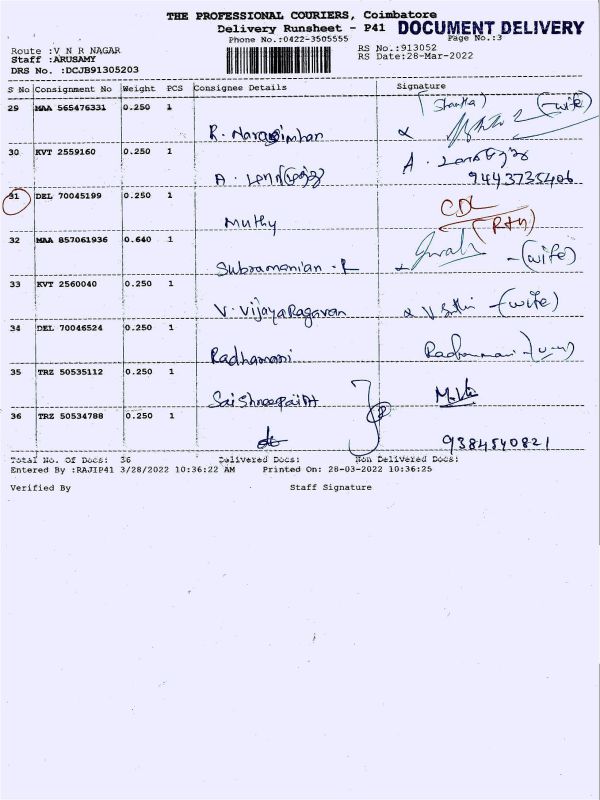 THE PROFESSIONAL COURIERS, Coimbatore
Delivery Runsheet - P41 DOCUMENT DELIVERY
Phone No.:0422-3505555 Page No.:3
Route :V N R NAGAR RS No.:913052
Staff :ARUSAMY RS Date:28-Mar-2022
DRS No. :DCJB91305203
S No Consignment No Weight PCS Consignee Details Signature
29 MAA 565476331 0.250 1
R. Narasimhan (wife)
30 KVT 2559160 0.250 1
A.
9443735406
31 DEL 70045199 0.250 1
Muthy CDL (Rtn)
32 MAA 857061936 0.640 1
Subramanian - R - (wife)
33 KVT 2560040 0.250 1
V. VijayaRagavan - (wife)
34 DEL 70046524 0.250 1
Radhamani
35 TRZ 50535112 0.250 1
36 TRZ 50534788 0.250 1
9384540821
Total No. Of Docs: 36 Delivered Docs: Non Delivered Docs:
Entered By :RAJIP41 3/28/2022 10:36:22 AM Printed On: 28-03-2022 10:36:25
Verified By Staff Signature